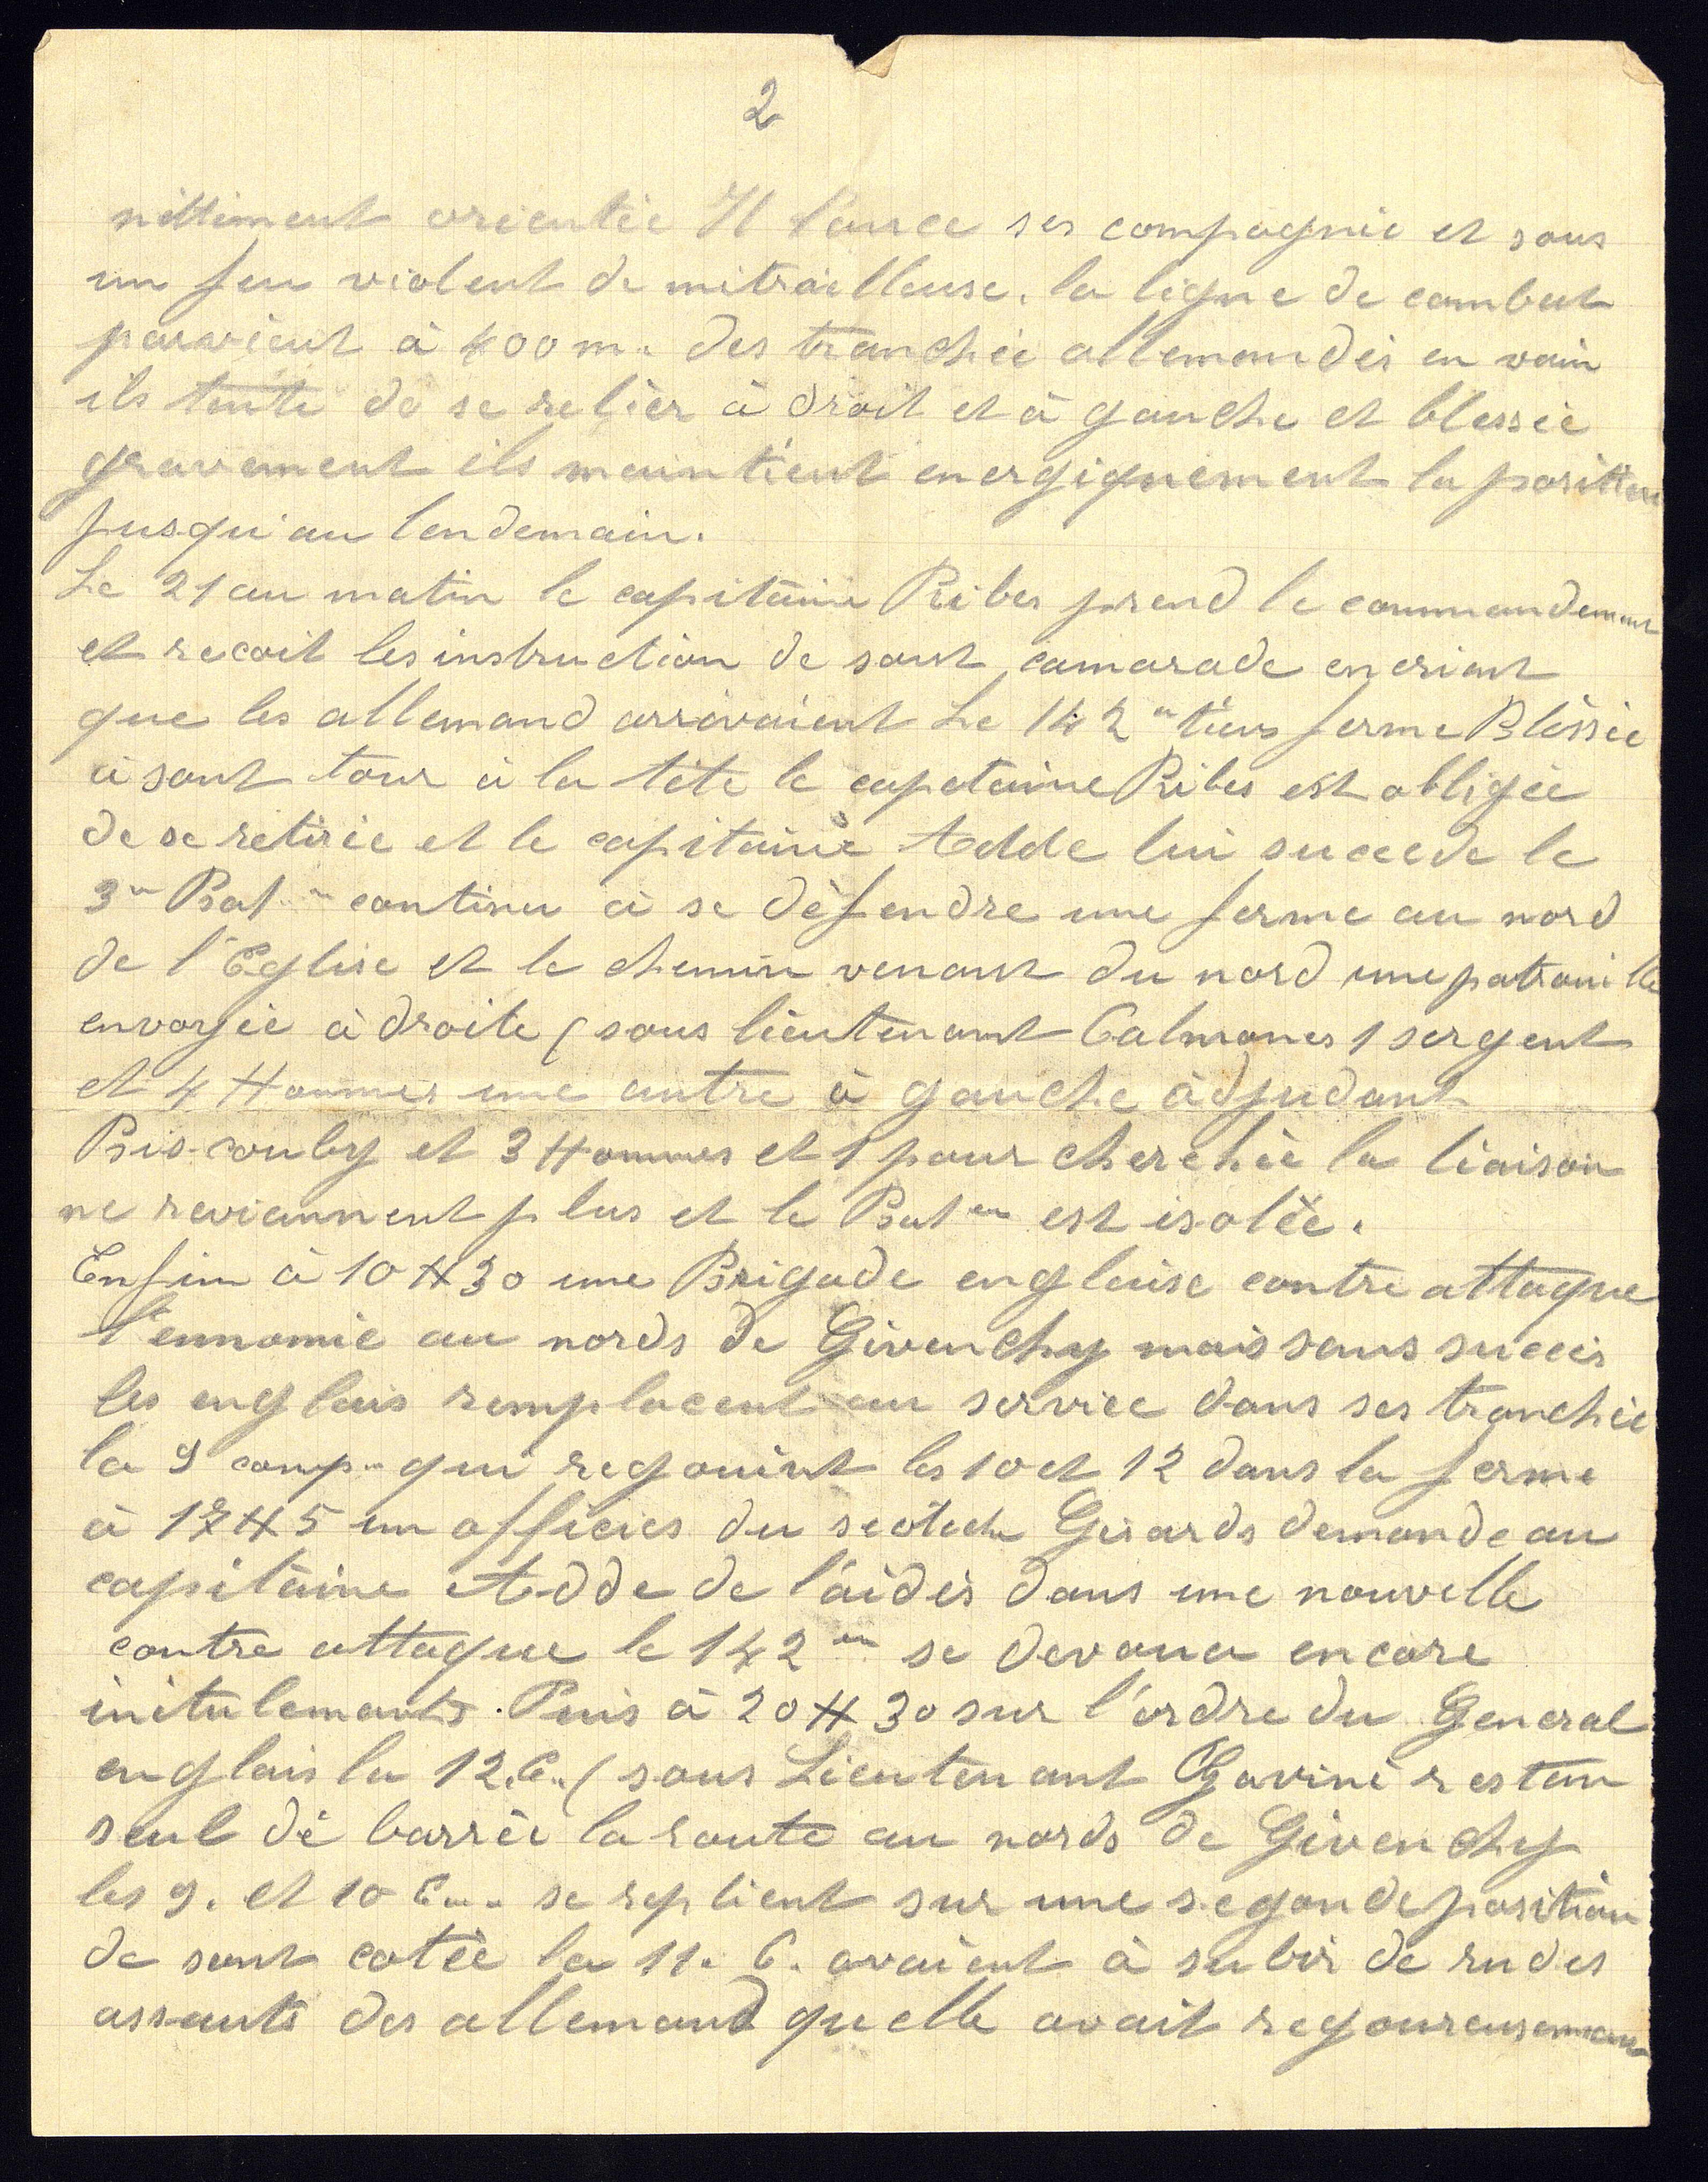 2
nettiment orientée Il lance ses compagnie et sous
un feu violent de mitrailleuse. la ligne de combat
parvient à 400 m. des tranchée allemandes en vain
ils tente de se relier à droit et à gauche et blessée
gravement ils maintient energiquement la position
jusqu'au lendemain.
Le 21 au matin le capitaine Ribes prend le commandement
et recoit les instruction de sont camarade en criant
que les allemand arrivaient Le 142 tiens ferme Blessée
à sont tour à la tête le capitaine Ribes est obligée
de se retirée et le capitaine Adde lui succede le
3 Bat continu à se défendre une ferme au nord
de l'Eglise et le chemin venant du nord une patrouille
envoyée à droite ( sous lieutenant Calmones 1 sergent
et 4 Hommes une autre à gauche adjudant
et 3 Hommes et 1 pour cherchée la liaison
ne reviennent plus et le Bat en est isolée.
Enfin à 10 H 30 une Brigade englaise contre attaque
l'ennomie au nords de Givenchy mais sans succés
les englais remplacent au service dans ses tranchée
la 9 comp. qui regouint les 10 et 12 dans la ferme
à H 5 un officies du scotch Girards demande au
capitaine Adde de l'aidés dans une nouvelle
contre attaque le 142 en se devoua encore
initulements. Puis à 20 H 30 sur l'ordre du General
englais la 12. C. ( sous Lieutenant Gavini restan
seul dé barrée la route au nords de Givenchy
les 9. et 10 C... se replient sur une segonde position
de sont cotée la 11. C. avaient à subir de rudes
assauts des allemand quelle avait regoureusemen